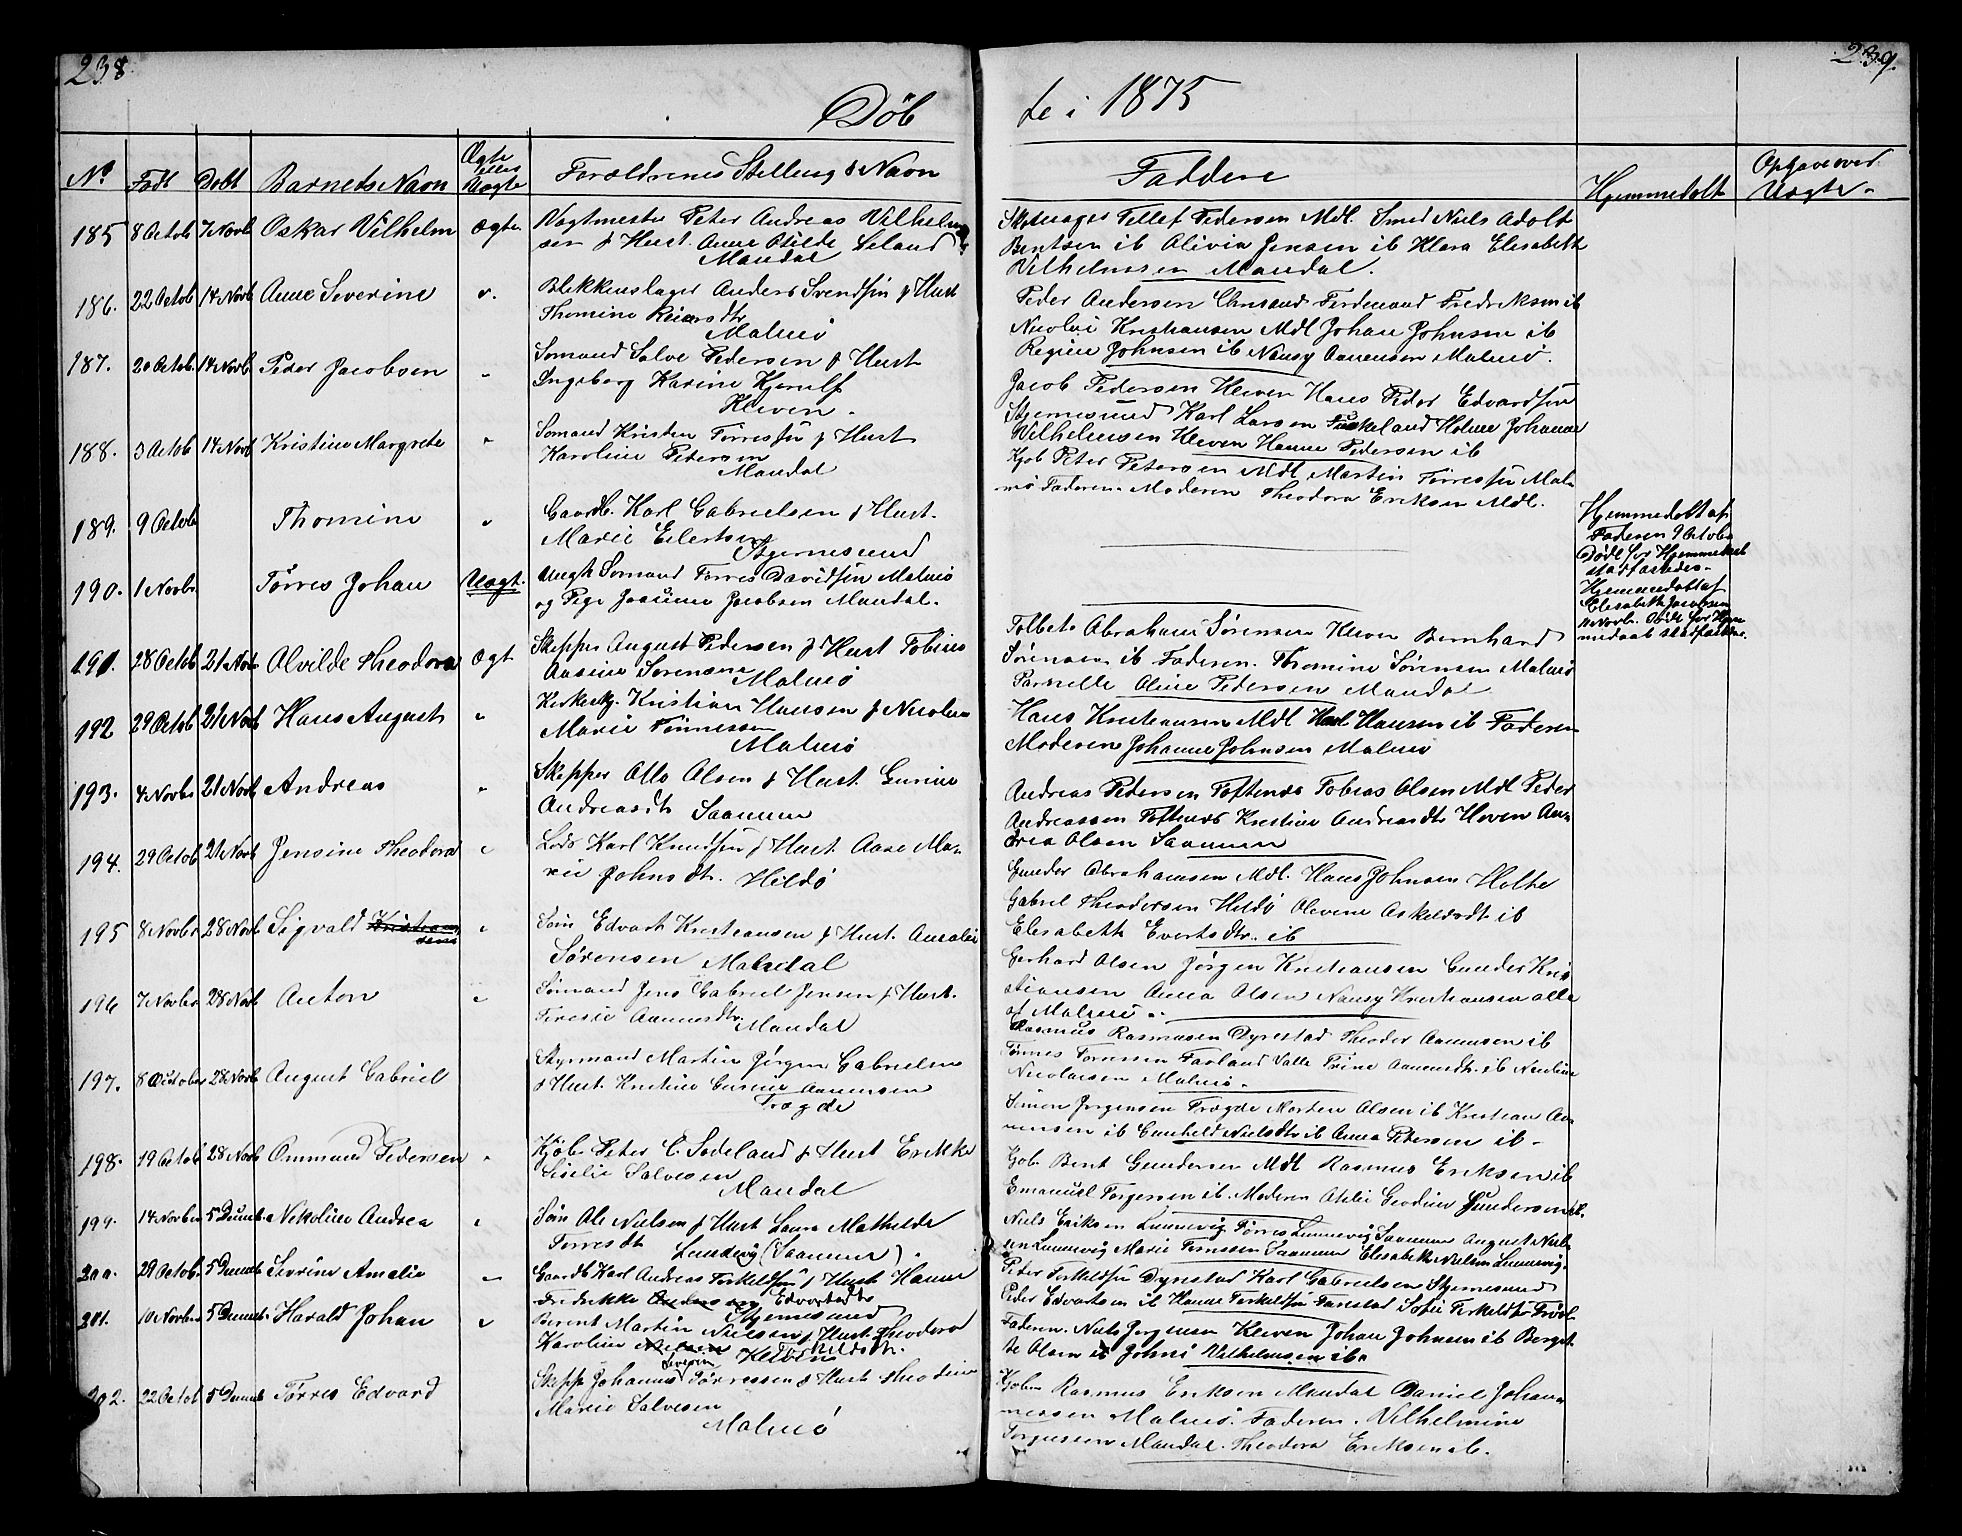 238.
239.
Døb
te i 1875
No
Født
Døbt
Barnets Navn
Ægte
eller
Uægte
Forældrenes Stilling & Navn
Faddere
Hjemmedøbt
Opgave over
Uægte
185 8 Octob 7 Novb Oskar Vilhelm Ægte Vagtmester Peter Andreas Vilhelm
sen & Hust. Anne Otilde Seland
Mandal
Tellef Pedersen Mdl. Smed Niels Adolt
Bentsen ib Olivia Jensen ib Klara Elisabeth
Vilhelmssen Mandal.
186. 22 Octob 14 Novb Anne Severine Blikkenslager Anders Svendsen & Hust
Thomine
Malmø
Peder Andersen Ferdenand Fredriksen ib
Nicolai Kristiansen Mdl Johan Johnsen ib
Regine Johnsen ib Nansy Aanensen Malmø.
187. 20 Octob. 14 Novb. Peder Jacobsen " Sømand Salve Pedersen & Hust
Ingeborg Karine
Kleven.
Jacob Pedersen Kleven Hans Peder Edvardsen
Stjernesund Karl Larsen Holme Johanne
Vilhelmsen Kleven Hanne Pedersen ib
188. 3 Octob 14 Novb Kristine Margrete " Sømand Kristen Tørressen & Hust
Karoline Pedersen
Mandal
Kjøb Peter Petersen Mdl Martin Tørressen Mal-
mø Faderen. Moderen Theodora Eriksen Mdl.
189. 9 Octob Thomine " Gaardb. Karl Gabrielsen & Hust.
Marie Eilertsen
Stjernesund
Hjemmedøbt af
Faderen 9 Octob
Døde før Hjemmedaab
stadfæstedes.
190. 1 Novbr Tørres Johan Uægt. Ungk Sømand Tørres Davidsen Malmø
og Pige Jacobsen Mandal.
Hjemmedøbt af
Elisabeth Jacobsen
Novbr. Døde før Hjem
medaab stadfæstes.
191. 28 Octob 21 Novb Alvilde Theodora Ægt Skipper August Pedersen & Hust Tobine
Aasine Sørensen
Malmø
Abraham Sørensen Kleven Bernhard
Sørensen ib Faderen. Thomine Sørensen Malmø
Pernelle Oline Pedersen Mandal
192 29 Octob 21 Novb Hans August " Kristian Hansen & Nicoline
Marie Tønnessen
Malmø
Hans Kristiansen Mdl Karl Hansen ib Faderen
Moderen Johanne Johnsen Malmø
193. 4 Novbr 21 Novb Andreas " Skipper Otto Olsen & Hust. Gurine
Andreasdt Saanum
Andreas Pedersen Toftenes Tobias Olsen Mdl Peder
Andreassen Toftenes Kristine Andreasdt Hoven An-
drea Olsen Saanum
194. 29 Octob 21 Novb Jensine Theodora " Lods Karl Knudsen & Hust Aase Ma-
rie Johnsdt. Hildø
Gunder Abrahamsen Mdl. Hans Johnsen Holte
Gabriel Theodorsen Hildø Olevine Askeldsdt ib
Elisabeth Evertsdtr. ib
195 8 Novbr 28 Novb Sigvald Kristian
sens " Søm Edvart Kristiansen & Hust. Amalie
Sørensen Mandal
Gerhard Olsen Jørgen Kristiansen Gunder Kris
tiansen Anna Olsen Nansy Kristiansen alle
af Malmø.
196 7 Novbr 28 Novb Anton " Sømand Jens Gabriel Jensen & Hust.
Teresie Aanensdtr.
Mandal
Rasmus Rasmussen Dyrestad Theodor Aanensen ib
Tønnes Tønnessen Farland Valle Trine Aanensdt. ib Nicoline
Nicolaisen Malmø.
197. 8 Octobr 28 Novb August Gabriel Styrmand Martin Jørgen Gabrielsen
& Hust. Kristine Gurine Aanensen
Trægde
Simon Jørgensen Trægde Morten Olsen ib Kristian Aa-
nensen ib Gunhild Nielsdtr ib Anna Petersen ib
198. 19 Octob 28 Novb Ommund Pedersen " Kjøb Peter C. Sodeland & Hust Erikke
Siselie Salvesen
Mandal
Kjøb. Bent Gundersen Mdl Rasmus Eriksen ib
Emanuel Torgersen ib. Moderen Otilie Geodine Gundersen ib.
199. 14 Novbr 5 Decemb Nikoline Andrea " Søm Ole Nielsen & Hust Laura Mathilde
Tørresdt Lundevig (Saanum).
Niels Eriksen Lunnevig Tørres Lunnevig Saanum August Niel
sen Lunnevig Marie Saanum Elisabeth Nielsen Lunnevig.
200. 29 Octob 5 Decemb Sevrine Amalie " Gaardb Karl Andreas Torkeldsen & Hust Hanne
Fredrikke Edvartsdt
Stjernesund
Peter Torkeldsen Dyrestad Karl Gabrielsen Stjernesund
Peder Edvartsen ib Hanne Torkeldsen Sofie
201. 10 Novbr 5 Decemb Harald Johan " Berent Martin Nielsen & Hust Theodora
Karoline Torkildsdtr.
Kleven
Faderen. Niels Jørgensen Kleven Johan Johnsen ib Berget
te Olsen ib Vilhelmsen ib.
202. 22 Octob 5 Decemb Tørres Edvard Skipp Johannes Tørressen & Hust Theodine
Marie Salvesen
Malmø
Kjøbm Rasmus Eriksen Mandal Daniel Johan-
nessen Malmø. Faderen. Vilhelmine
Torgussen Mandal. Theodora Eriksen ib.